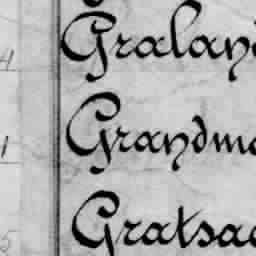 4 Graland
1 Grandmo
5 Gratsac